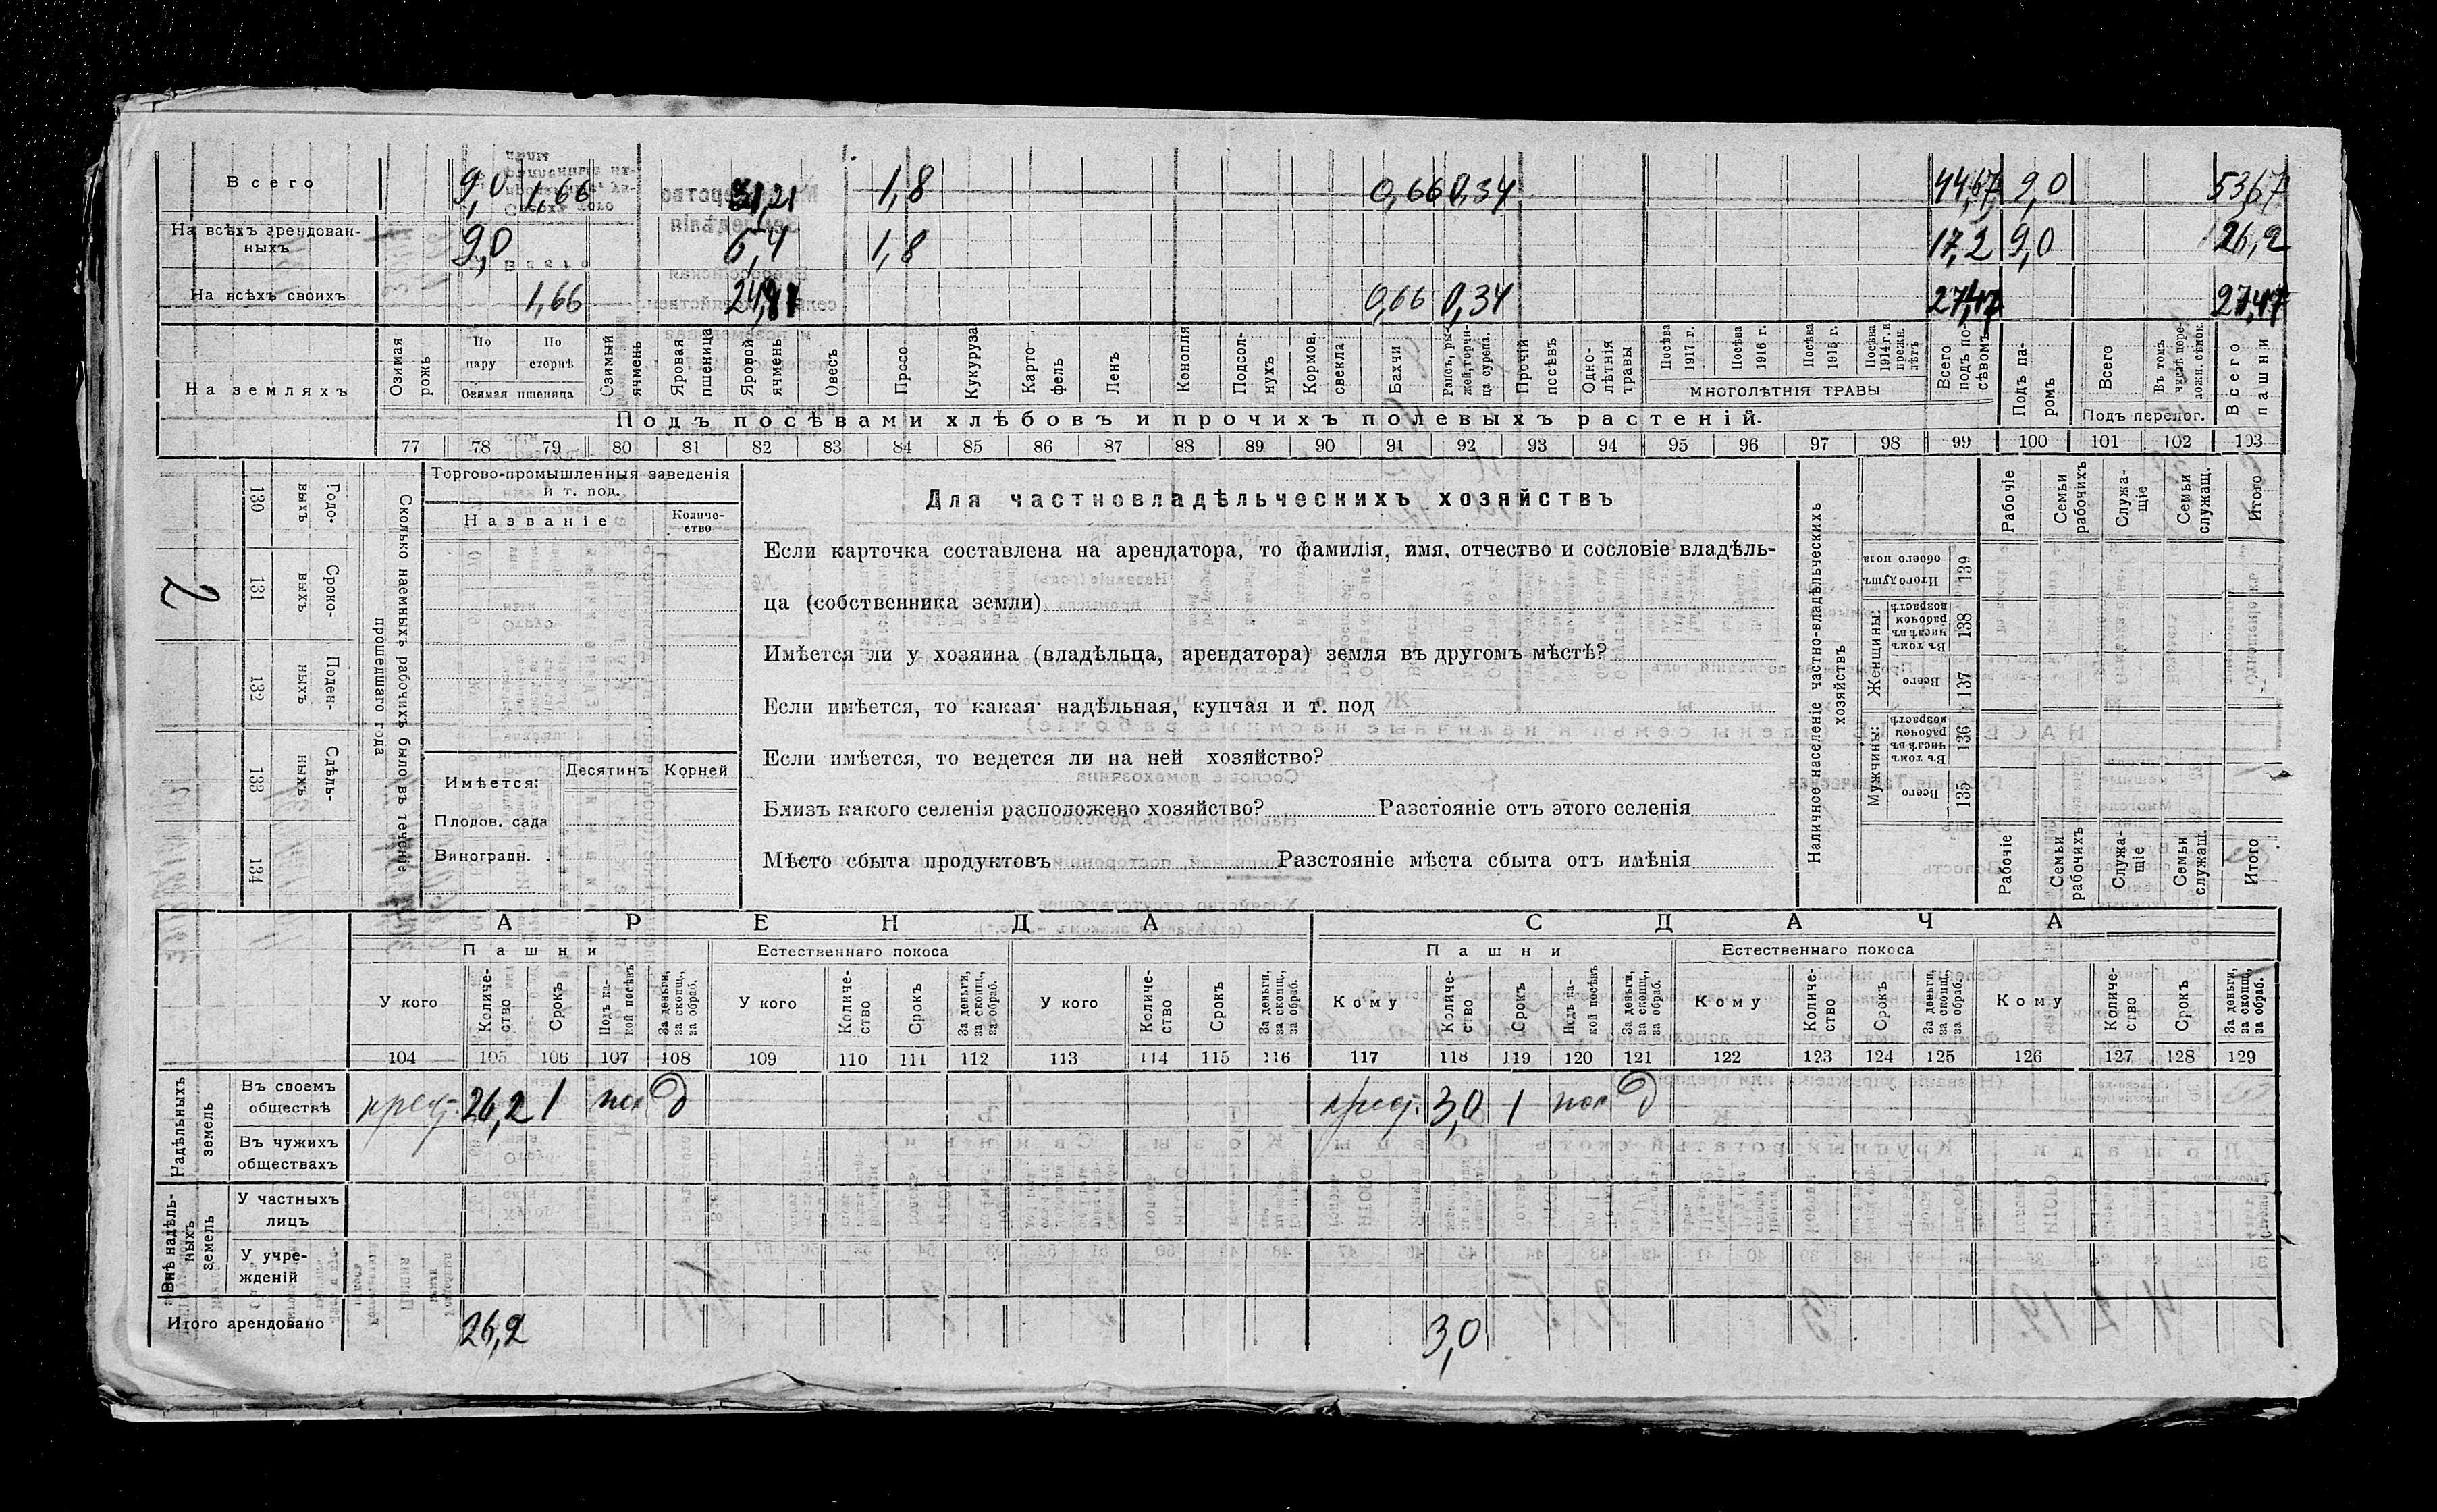 Всего 9,0 1,66 31,21 1,8 0,66 0,34 44,67 9,0 53,67
На всѣхъ арендован-
ныхъ 9,0 6,4 1,8 17,2 9,0 26,2
На всѣхъ своихъ 1,66 0,66 0,34 27,47 27,47
На земляхъ
Озимая рожь
По пару
По сторнѣ
Озимая пшеница
Озимый ячмень
Яровая пшеница
Яровой ячмень
Овесъ
Просо
Кукуруза
Карто-
фель
Ленъ
Конопля
Подсол-
нухъ
Кормов.
свекла
Бахчи
Рапсъ, ры-
жей, горчи-
ца сурепа.
Прочій
посѣвъ
Одно-
лѣтнія
травы
Посѣва
1917 г.
Посѣва
1916 г.
Посѣва
1915 г.
Посѣва
1914 г. и
прежн.
лѣтъ
МНОГОЛѢТНІЯ ТРАВЫ
Всего
подъ по-
сѣвомъ
Подъ па-
ромъ
Всего
Въ томъ
числѣ пере-
ложн. сѣнок.
Подъ перелог.
Всего
пашни
Подъ посѣвами хлѣбовъ и прочихъ полевыхъ растеній.
77 78 79 80 81 82 83 84 85 86 87 88 89 90 91 92 93 94 95 96 97 98 99 100 101 102 103
Сколько наемныхъ рабочихъ было въ теченіе
прошедшаго года
Годо-
выхъ
130
Сроко-
выхъ
131
2
Поден-
ныхъ
132
Сдѣль-
ныхъ
133
134
Торгово-промышленныя заведенія
и т. под.
Названіе
Количе-
ство
Имѣется:
Десятинъ
Корней
Плодов. сада
Виноградн.
Для частновладѣльческихъ хозяйствъ
Если карточка составлена на арендатора, то фамилія, имя, отчество и сословіе владѣль-
ца (собственника земли)
Имѣется ли у хозяина (владѣльца, арендатора) земля въ другомъ мѣстѣ?
Если имѣется, то какая надѣльная, купчая и т. под
Если имѣется, то ведется ли на ней хозяйство?
Близъ какого селенія расположено хозяйство? Разстояніе отъ этого селенія
Мѣсто сбыта продуктовъ Разстояніе мѣста сбыта отъ имѣнія
Наличное населеніе частно-владѣльческихъ
хозяйствъ
Рабочіе
Семьи
рабочихъ
Служа-
щіе
Семьи
служащ.
Итого
Итого душъ
обоего пола
139
Женщины:
Въ томъ
числѣ въ
рабочем
возрастѣ
138
Всего
137
Мужчины:
Въ томъ
числѣ въ
рабочем
возрастѣ
136
Всего
135
Рабочіе
Семьи
рабочихъ
Служа-
щіе
Семьи
служащ.
Итого
АРЕНДА СДАЧА
Пашни Естественнаго покоса Пашни Естественнаго покоса
У кого
Количе-
ство
Срокъ
Подъ ка-
кой посѣвъ
За деньги,
за скопщ.,
за обраб.
У кого
Количе-
ство
Срокъ
За деньги,
за скопщ.,
за обраб.
У кого
Количе-
ство
Срокъ
За деньги,
за скопщ.,
за обраб.
Кому
Количе-
ство
Срокъ
Подъ ка-
кой посѣвъ
За деньги,
за скопщ.,
за обраб.
Кому
Количе-
ство
Срокъ
За деньги,
за скопщ.,
за обраб.
Кому
Количе-
ство
Срокъ
За деньги,
за скопщ.,
за обраб.
104 105 106 107 108 109 110 111 112 113 114 115 116 117 118 119 120 121 122 123 124 125 126 127 128 129
Надѣльныхъ
земель
Въ своемъ
обществѣ
крест. 26,2 1 пол д крест. 3,0 1 пол д
Въ чужихъ
обществахъ
Внѣ надѣль-
ныхъ
земель
У частныхъ
лицъ
У учре-
жденій
Итого арендовано 26,2 3,0